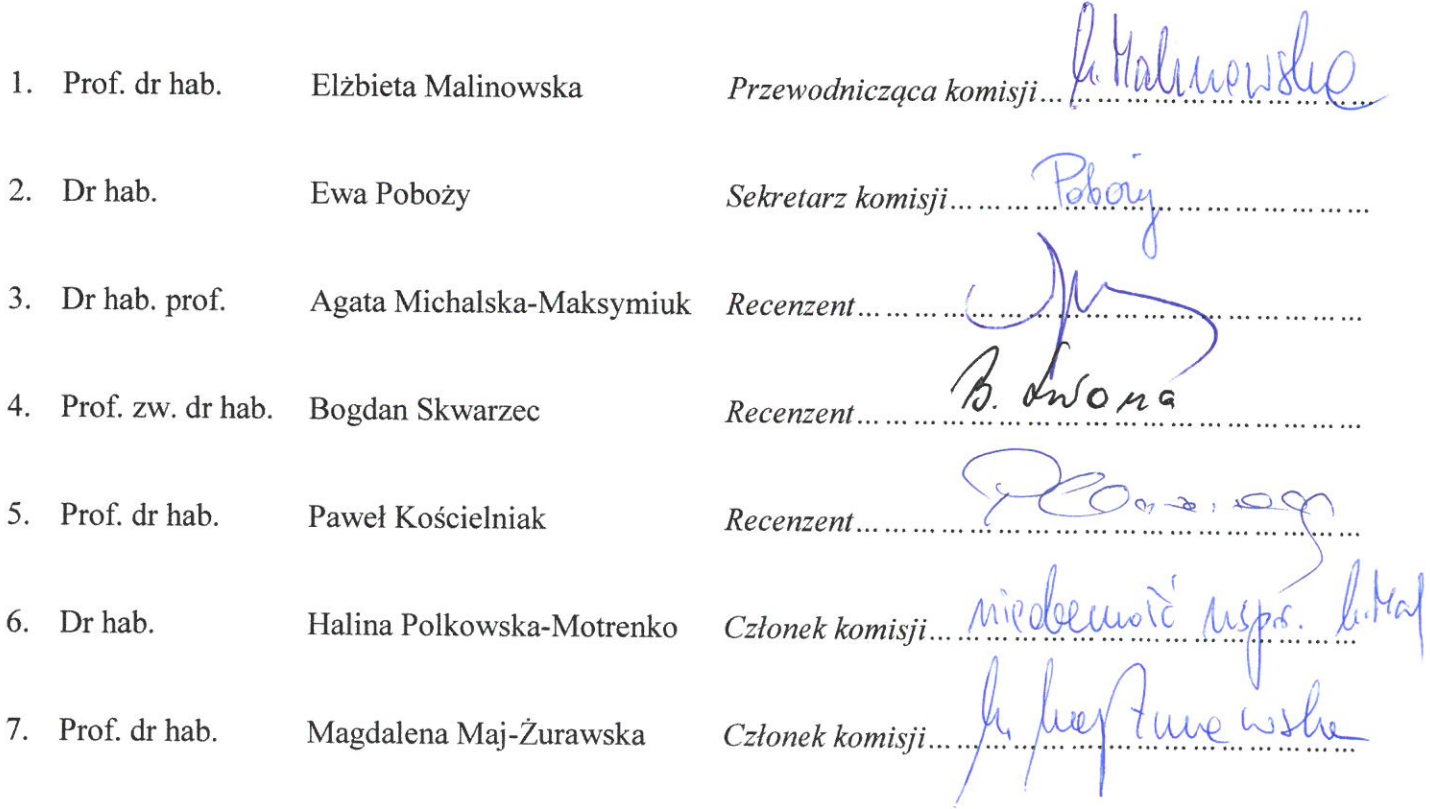 1. Prof. dr hab. Elżbieta Malinowska Przewodnicząca komisji... Malinowska
2. Dr hab. Ewa Poboży Sekretarz komisji... Poboży
3. Dr hab. prof. Agata Michalska-Maksymiuk Recenzent...
4. Prof. zw. dr hab. Bogdan Skwarzec Recenzent... B.
5. Prof. dr hab. Paweł Kościelniak Recenzent...
6. Dr hab. Halina Polkowska-Motrenko Członek komisji... nieobecność uspr.
7. Prof. dr hab. Magdalena Maj-Żurawska Członek komisji...